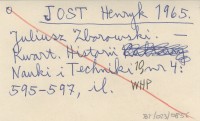 JOST Henryk 1965.
Juliusz Zborowski. —
Kwart. Historii
Nauki i Techniki 10 nr 4:
595-597, il.
WHP